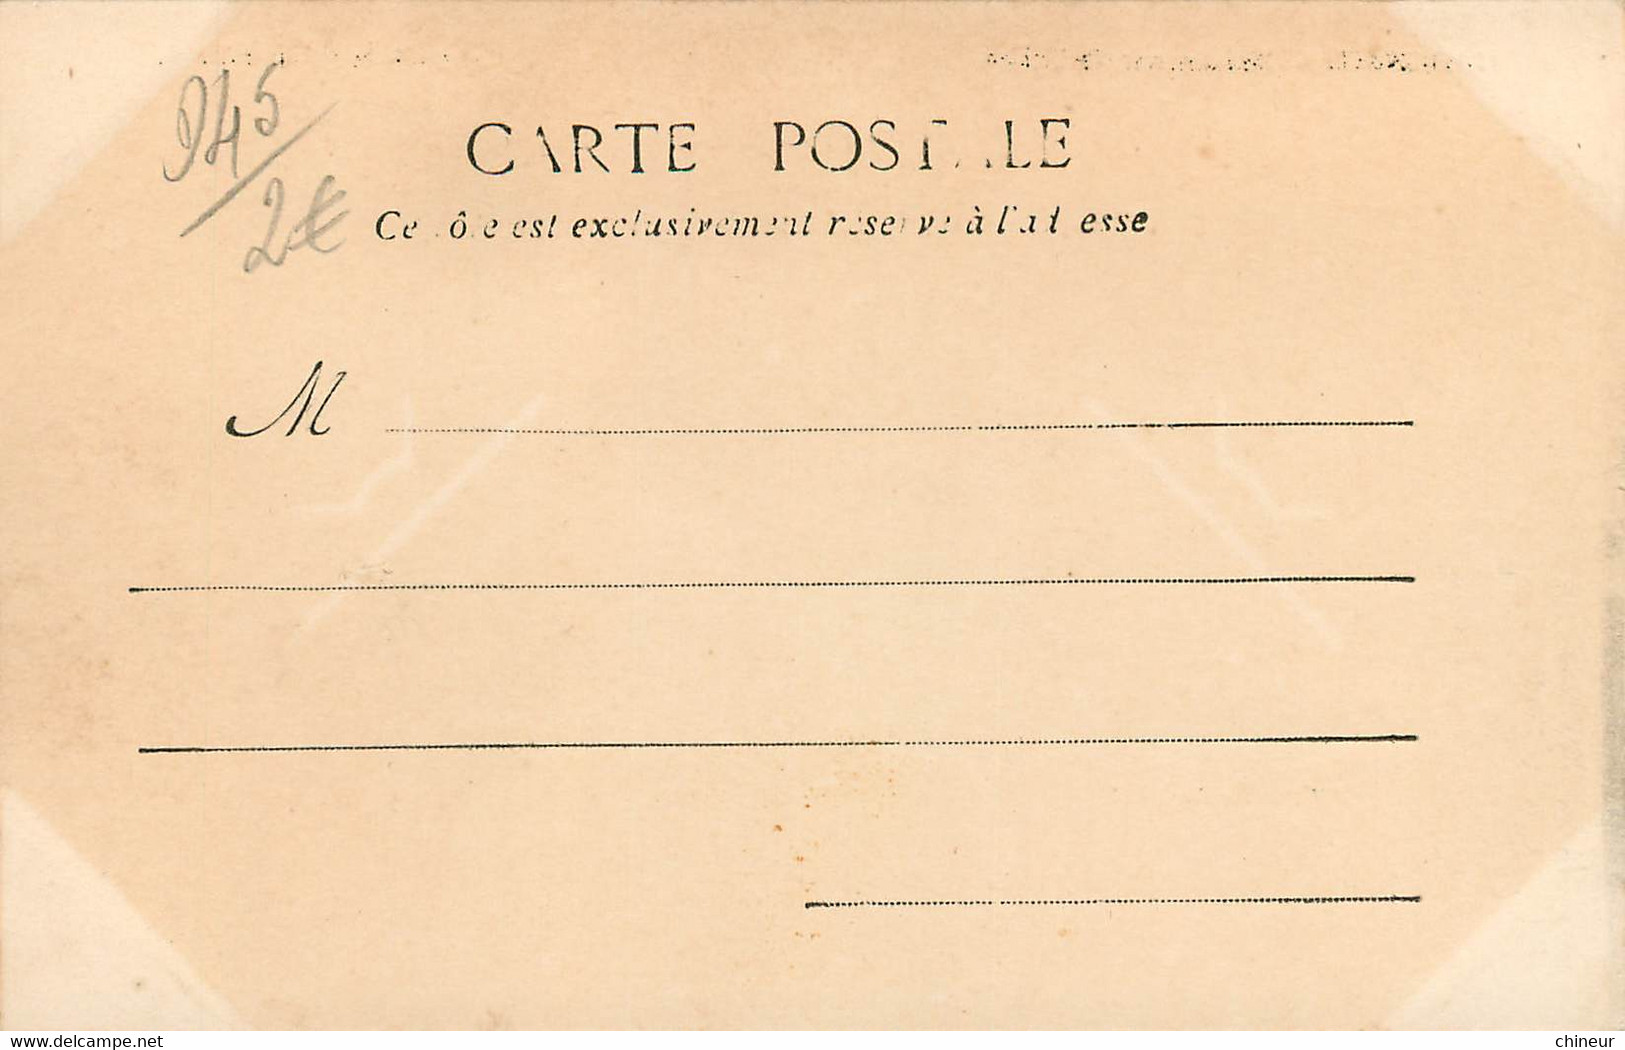 945
2€
CARTE POSTALE
Ce côté est exclusivement réservé à l'adresse
M
delcampe.net
chineur